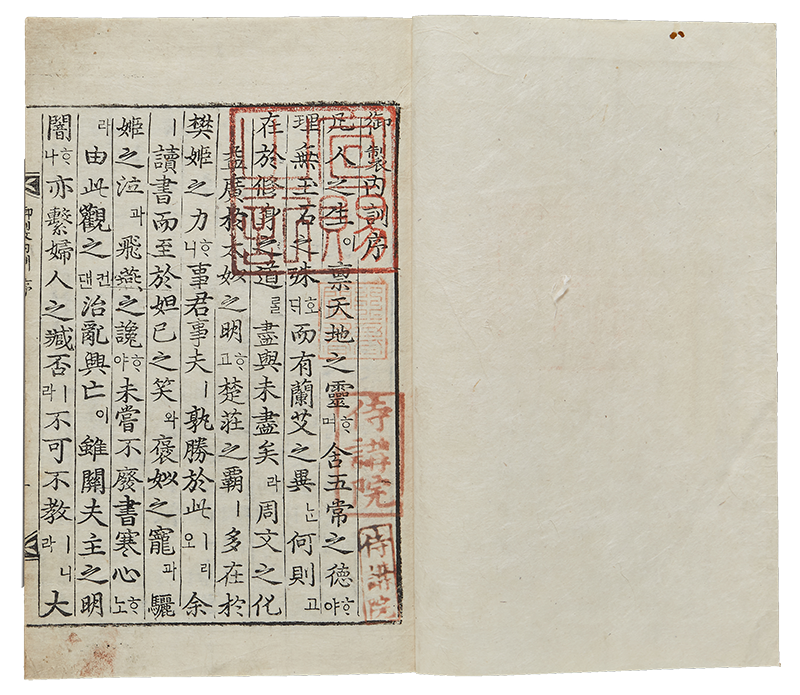 御製内訓序
凡人之生이 禀天地之靈ᄒᆞ며 含五常之德ᄒᆞ야
理無玉石之殊호ᄃᆡ 而有蘭艾之異ᄂᆞᆫ 何則고
在於修身之道ᄅᆞᆯ 盡與未盡矣라 周文之化
益廣於太姒之明ᄒᆞ고 楚莊之覇ㅣ 多在於
樊姬之力ᄒᆞ니 事君事夫ㅣ 孰勝於此ㅣ리오 余
ㅣ讀書而至於妲己之笑와 褒姒之寵과 驪
姬之泣과 飛燕之讒ᄒᆞ야 未嘗不廢書寒心ᄒᆞ노
라 由此觀之컨댄 治亂興亡이 雖關夫主之明
闇ᄒᆞ나 亦繫婦人之臧否ㅣ라 不可不教ㅣ니라 大
侍講院
侍講院